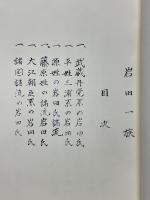 岩田一族
目次
一、武蔵丹党系の岩田氏
一、平姓三浦系の岩田氏
一、源姓の岩田氏諸流
一、藤原姓の諸岩田氏
一、大江朝臣系の岩田氏
一、諸国諸流の岩田氏